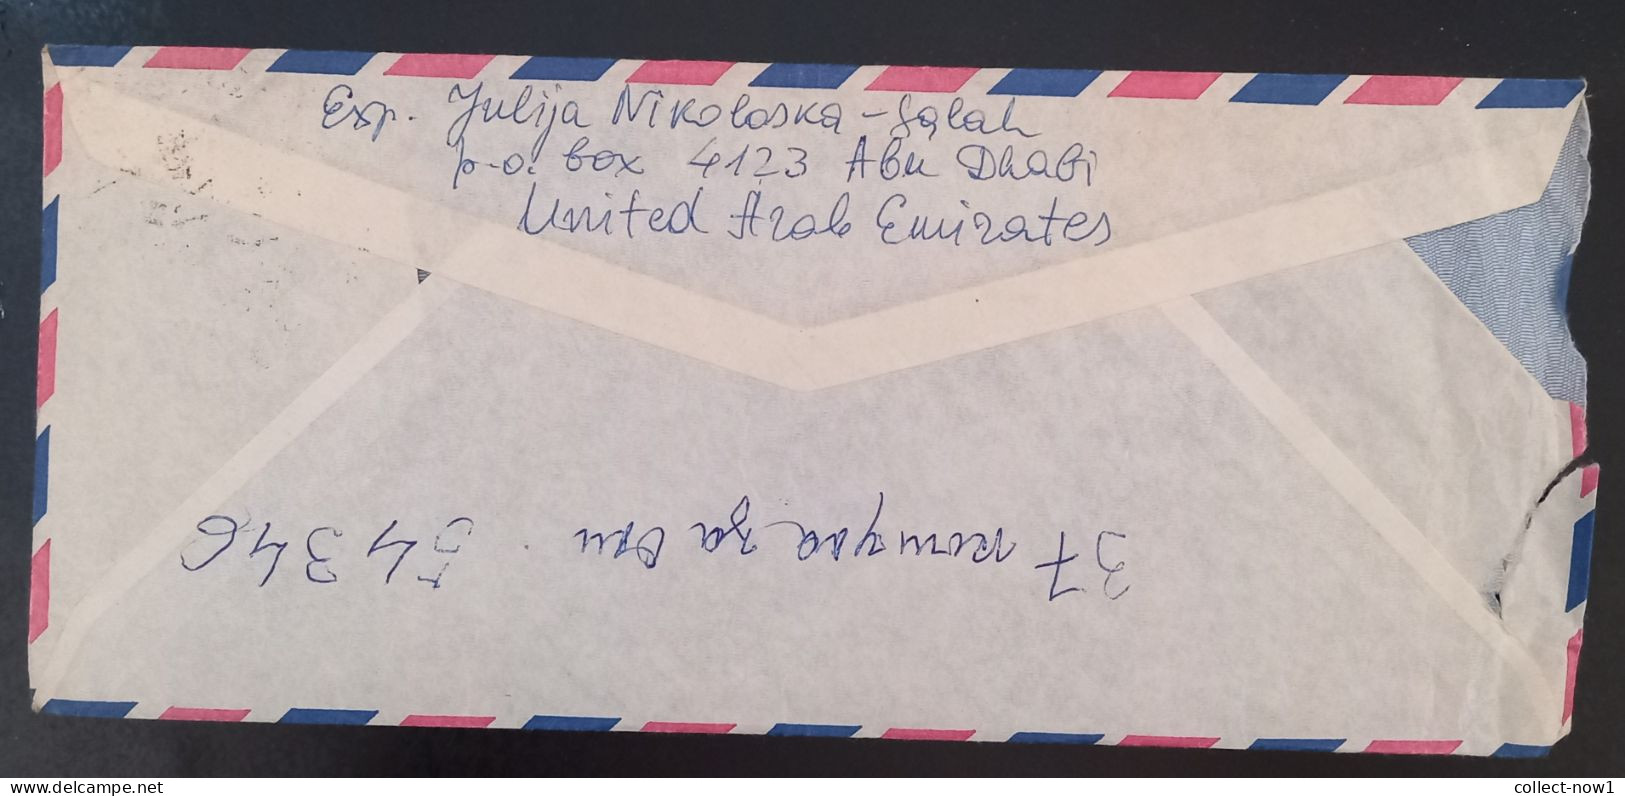 Exp. Julija Nikoloska-Salah
p.o. box 4123 Abu Dhabi
United Arab Emirates
37 за 54346
delcampe.net
collect-now1